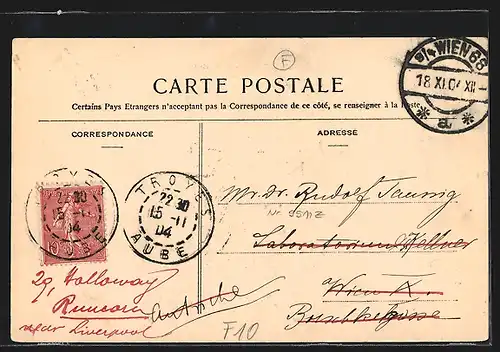 F
9/4 WIEN 66
18 XI.04 XII-
* a *
CARTE POSTALE
Certains Pays Etrangers n'acceptent pas la Correspondance de ce côté, se renseigner à la Poste.
CORRESPONDANCE
ADRESSE
TROYES
22 30
15 - 11
04
AUBE
TROYES
22 30
15 - 11
04
AUBE
10
Mr. Dr. Rudolf Taussig
Laboratorium Kellner
Wien IX.
29, Holloway
Runcorn
near Liverpool
F10